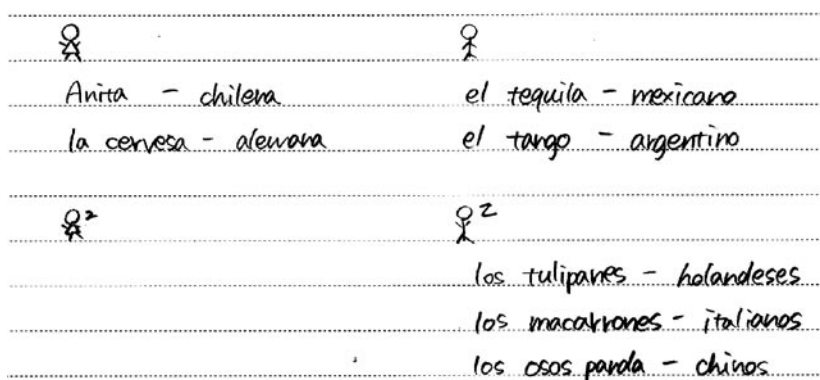 Anita - chilena
la cervesa - alemana
el tequila - mexicano
el tango - argentino
2
2
los tulipanes - holandeses
los macarrones - italianos
los osos panda - chinos